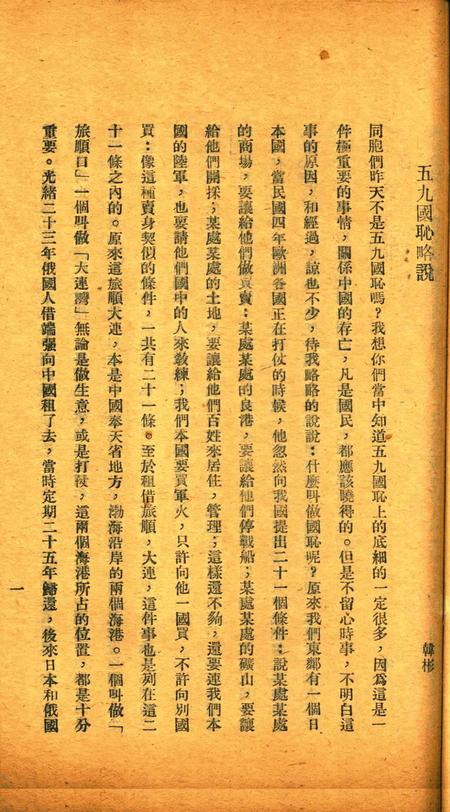 五九國恥略說
韓彬
同胞們昨天不是五九國恥嗎？我想你們當中知道五九國恥上的底細的一定很多，因為這是一
件極重要的事情，關係中國的存亡，凡是國民，都應該曉得的。但是不留心時事，不明白這
事的原因，和經過，諒也不少，待我略略的說說：什麼叫做國恥呢？原來我們東鄰有一個日
本國，當民國四年歐洲各國正在打仗的時候，他忽然向我國提出二十一個條件：說某處某處
的商場，要讓給他們做買賣：某處某處的良港，要讓給他們停戰船；某處某處的礦山，要讓
給他們開採；某處某處的土地，要讓給他們百姓來居住，管理；這樣還不夠，還要連我們本
國的陸軍，也要請他們國中的人來教練；我們本國要買軍火，只許向他一國買，不許向別國
買：像這種賣身契似的條件，一共有二十一條。至於租借旅順，大連，這件事也是列在這二
十一條之內的。原來這旅順大連，本是中國奉天省地方，渤海沿岸的兩個海港。一個叫做「
旅順口」一個叫做「大連灣」無論是做生意，或是打仗，這兩個海港所占的位置，都是十分
重要。光緒二十三年俄國人借端強向中國租了去，當時定期二十五年歸還，後來日本和俄國
一